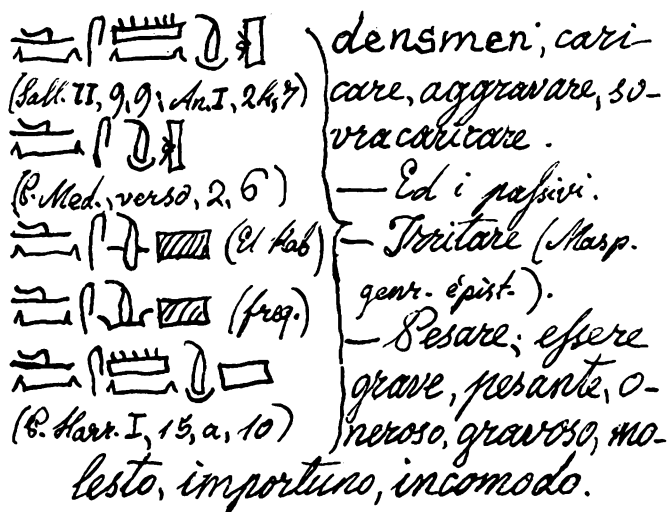 (Sall. II, 9, 9; An. I, 24, 7)
(P. Med., verso, 2, 6)
(El Kab)
(freq.)
(P. Harr. I, 15, a, 10)
densmen; cari-
care, aggravare, so-
vracaricare.
— Ed i passivi.
— Irritare (Masp.
genr. épist.).
— Pesare; essere
grave, pesante, o-
neroso, gravoso, mo-
lesto, importuno, incomodo.